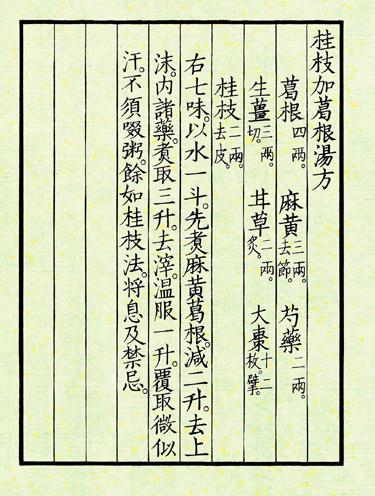 桂枝加葛根湯方
葛根四兩。麻黃三兩。去節。芍藥二兩。
生薑三兩。切。甘草二兩。炙。大棗十二枚。擘。
桂枝二兩。去皮。
右七味。以水一斗。先煮麻黃葛根。減二升。去上
沫。内諸藥。煮取三升。去滓。温服一升。覆取微似
汗。不須啜粥。餘如桂枝法。將息及禁忌。